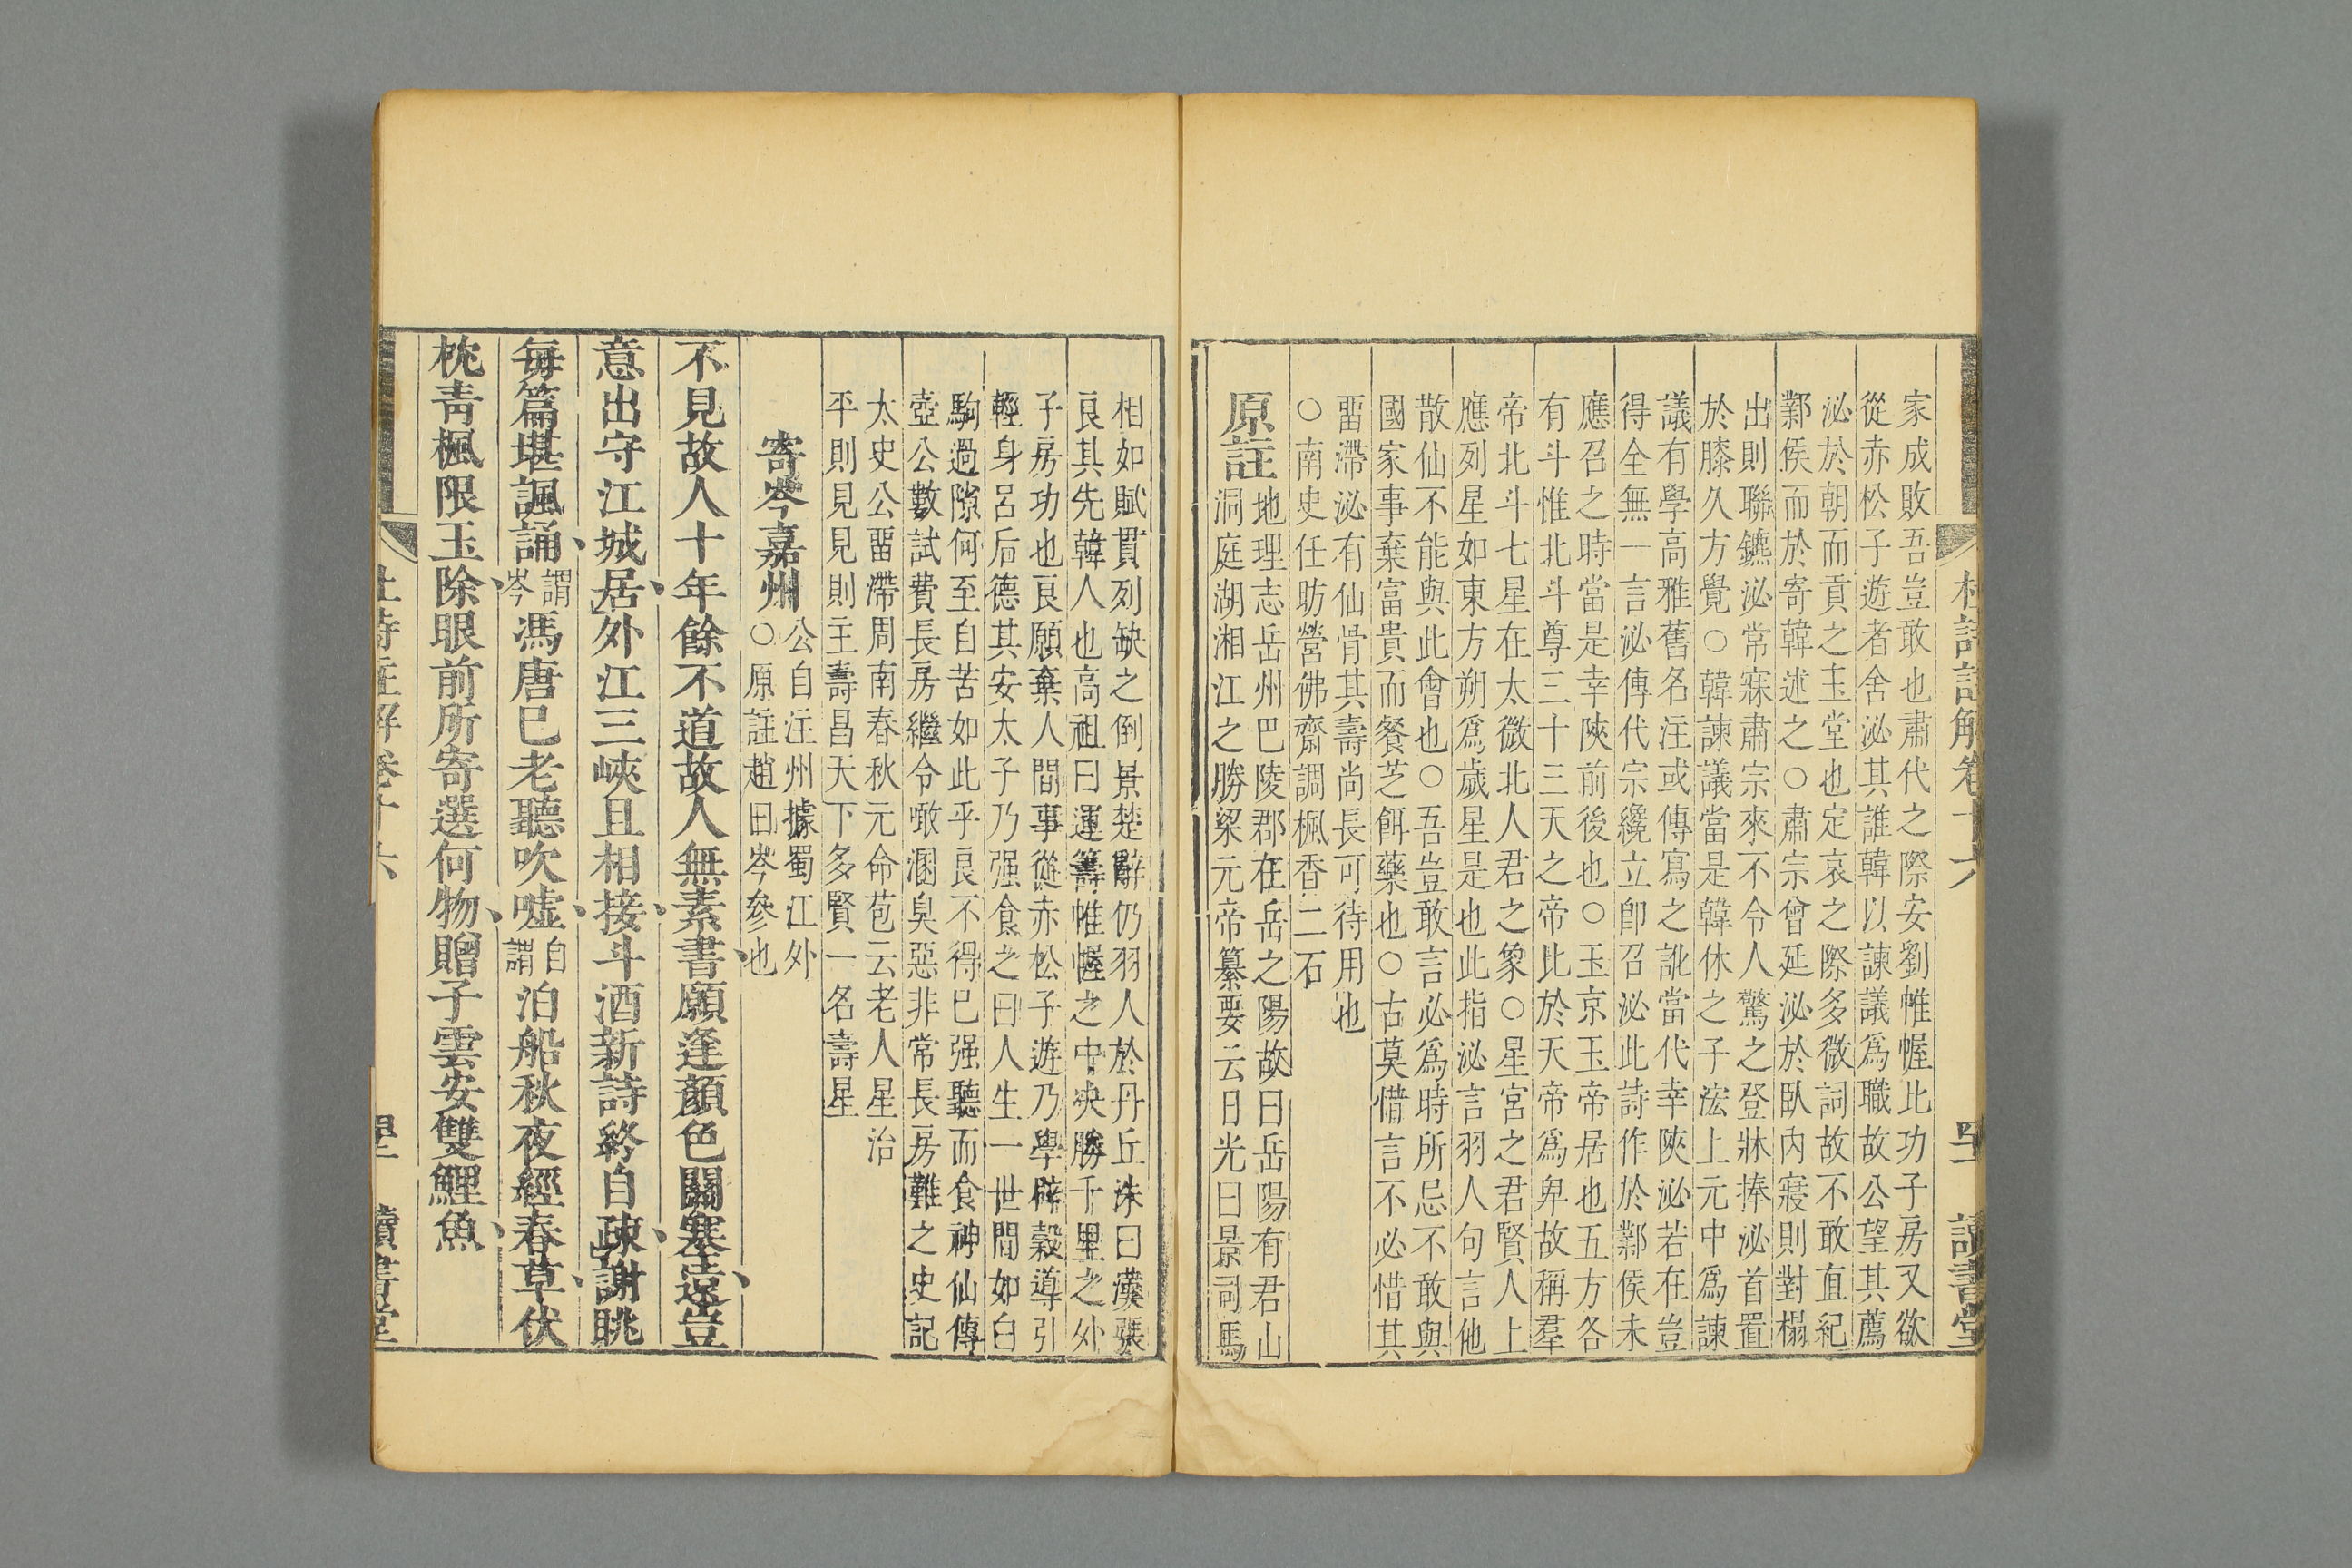 家成敗吾豈敢也肅代之際安劉帷幄比功子房又欲
從赤松子遊者舍泌其誰韓以諫議爲職故公望其薦
泌於朝而貢之玉堂也定哀之際多微詞故不敢直紀
鄴侯而於寄韓述之○肅宗曾延泌於臥內寢則對榻
出則聯鑣泌常寐肅宗來不令人驚之登牀捧泌首置
於膝久方覺○韓諫議當是韓休之子浤上元中爲諫
議有學高雅舊名注或傳寫之訛當代幸陝泌若在豈
得全無一言泌傳代宗纔立卽召泌此詩作於鄴侯未
應召之時當是幸陝前後也○玉京玉帝居也五方各
有斗惟北斗尊三十三天之帝比於天帝爲卑故稱羣
帝北斗七星在太微北人君之象○星宮之君賢人上
應列星如東方朔爲歲星是也此指泌言羽人句言他
散仙不能與此會也○吾豈敢言必爲時所忌不敢與
國家事棄富貴而餐芝餌藥也○古莫惜言不必惜其
畱滯泌有仙骨其壽尚長可待用也
○南史任昉營佛齋調楓香二石
原註
地理志岳州巴陵郡在岳之陽故曰岳陽有君山
洞庭湖湘江之勝梁元帝纂要云日光曰景司馬
杜詩註解卷十六
讀書堂
相如賦貫列缺之倒景楚辭仍羽人於丹丘洙曰漢張
良其先韓人也高祖曰運籌帷幄之中央勝千里之外
子房功也良願棄人間事從赤松子遊乃學辟穀導引
輕身呂后德其安太子乃强食之曰人生一世間如白
駒過隙何至自苦如此乎良不得已强聽而食神仙傳
壺公數試費長房繼令噉溷臭惡非常長房難之史記
太史公畱滯周南春秋元命苞云老人星治
平則見見則主壽昌天下多賢一名壽星
寄岑嘉州
公自注州據蜀江外
○原註趙曰岑參也
不見故人十年餘不道故人無素書願逢顏色關塞遠豈
意出守江城居外江三峽且相接斗酒新詩終自疎謝眺
每篇堪諷誦
謂
岑
馮唐已老聽吹噓
自
謂
泊船秋夜經春草伏
枕青楓限玉除眼前所寄選何物贈子雲安雙鯉魚
杜詩註解卷十六
讀書堂